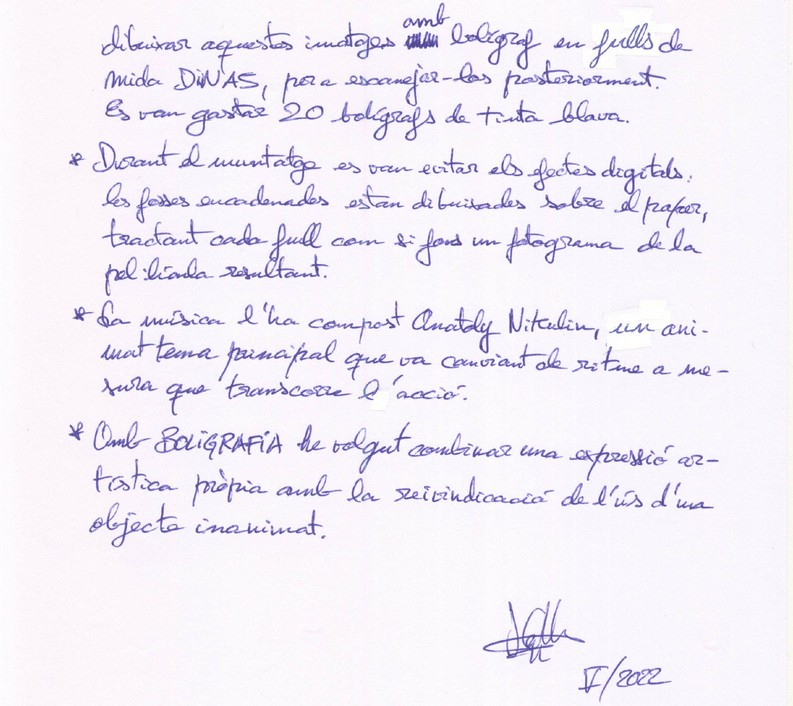 dibuixar aquestes imatges amb bolígraf en fulls de
mida DiNA5, per a escanejar-les posteriorment.
Es van gastar 20 bolígrafs de tinta blava.
* Durant el muntatge es van evitar els efectes digitals:
les foses encadenades estan dibuixades sobre el paper,
tractant cada full com si fos un fotograma de la
pel·lícula resultant.
* La música l'ha compost Anatoly Nikulin, un ani-
mat tema principal que va canviant de ritme a me-
sura que transcorre l'acció.
* Amb BOLiGRAFiA he volgut combinar una expressió ar-
tística pròpia amb la reivindicació de l'ús d'un
objecte inanimat.
V/2022